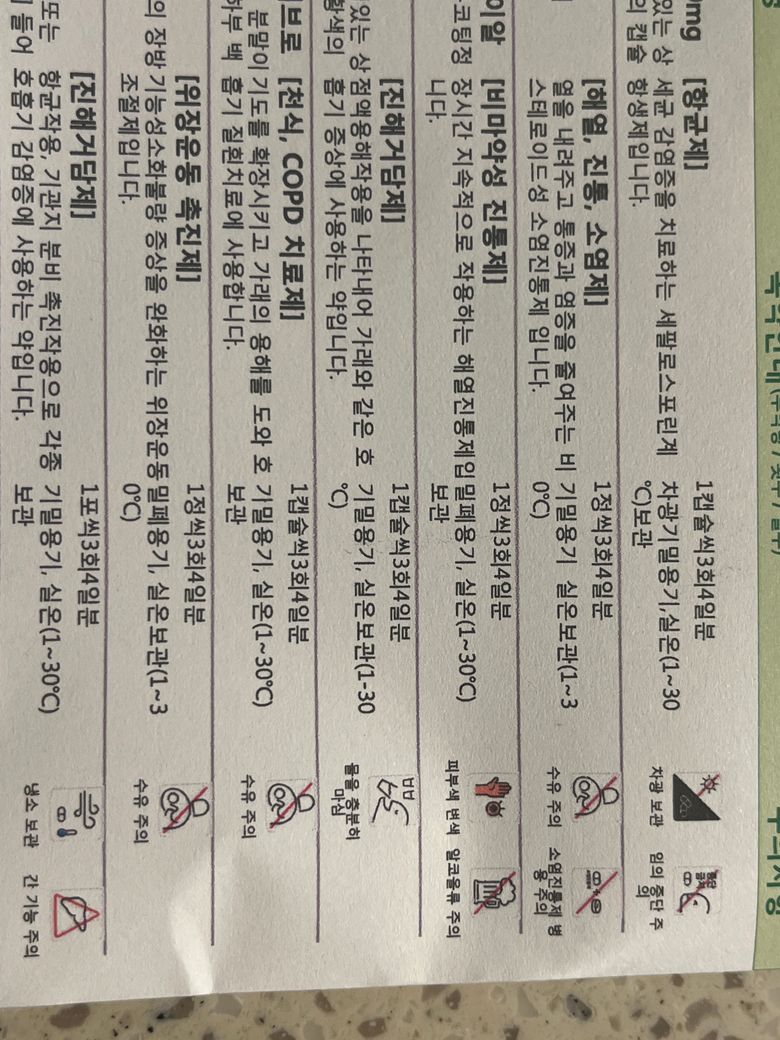 0mg [항균제] 1캡슐씩3회4일분
있는 상 세균 감염증을 치료하는 세팔로스포린계 차광기밀용기,실온(1~30
의 캡슐 항생제입니다. ℃)보관
차광 보관 임의 중단 주
의
[해열, 진통, 소염제] 1정씩3회4일분
열을 내려주고 통증과 염증을 줄여주는 비 기밀용기 실온보관(1~3
스테로이드성 소염진통제 입니다. 0℃)
수유 주의 소염진통제 병
용 주의
이알 [비마약성 진통제] 1정씩3회4일분
코팅정 장시간 지속적으로 작용하는 해열진통제입 밀폐용기, 실온(1~30℃)
니다. 보관
피부색 변색 알코올류 주의
[진해거담제] 1캡슐씩3회4일분
있는 상 점액용해작용을 나타내어 가래와 같은 호 기밀용기, 실온보관(1-30
황색의 흡기 증상에 사용하는 약입니다. ℃)
물을 충분히
마심
브로 [천식, COPD 치료제] 1캡슐씩3회4일분
분말이 기도를 확장시키고 가래의 용해를 도와 호 기밀용기, 실온(1~30℃)
하부 백 흡기 질환치료에 사용합니다. 보관
수유 주의
[위장운동 촉진제] 1정씩3회4일분
의 장방 기능성소화불량 증상을 완화하는 위장운동 밀폐용기, 실온보관(1~3
조절제입니다. 0℃)
수유 주의
[진해거담제] 1포씩3회4일분
또는 항균작용, 기관지 분비 촉진작용으로 각종 기밀용기, 실온(1~30℃)
들어 호흡기 감염증에 사용하는 약입니다. 보관
냉소 보관 간 기능 주의